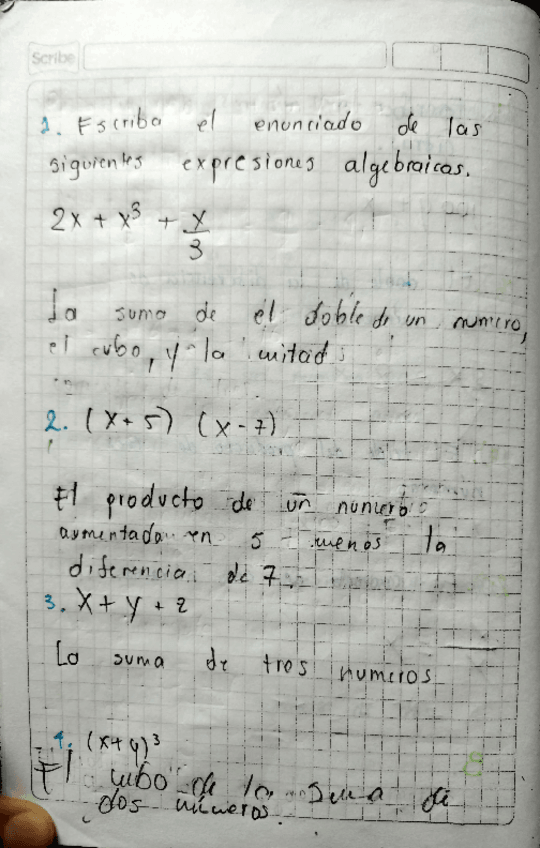 Scribe
1. Escriba el enunciado de las
siguientes expresiones algebraicas.
2x + x³ + x/3
La suma de el doble de un numero,
el cubo, y la mitad
2. (x + 5) (x - 7)
El producto de un numero
aumentada en 5 menos la
diferencia de 7.
3. x + y + 2
La suma de tres numeros
4. (x + y)³
El cubo de la suma de
dos números.